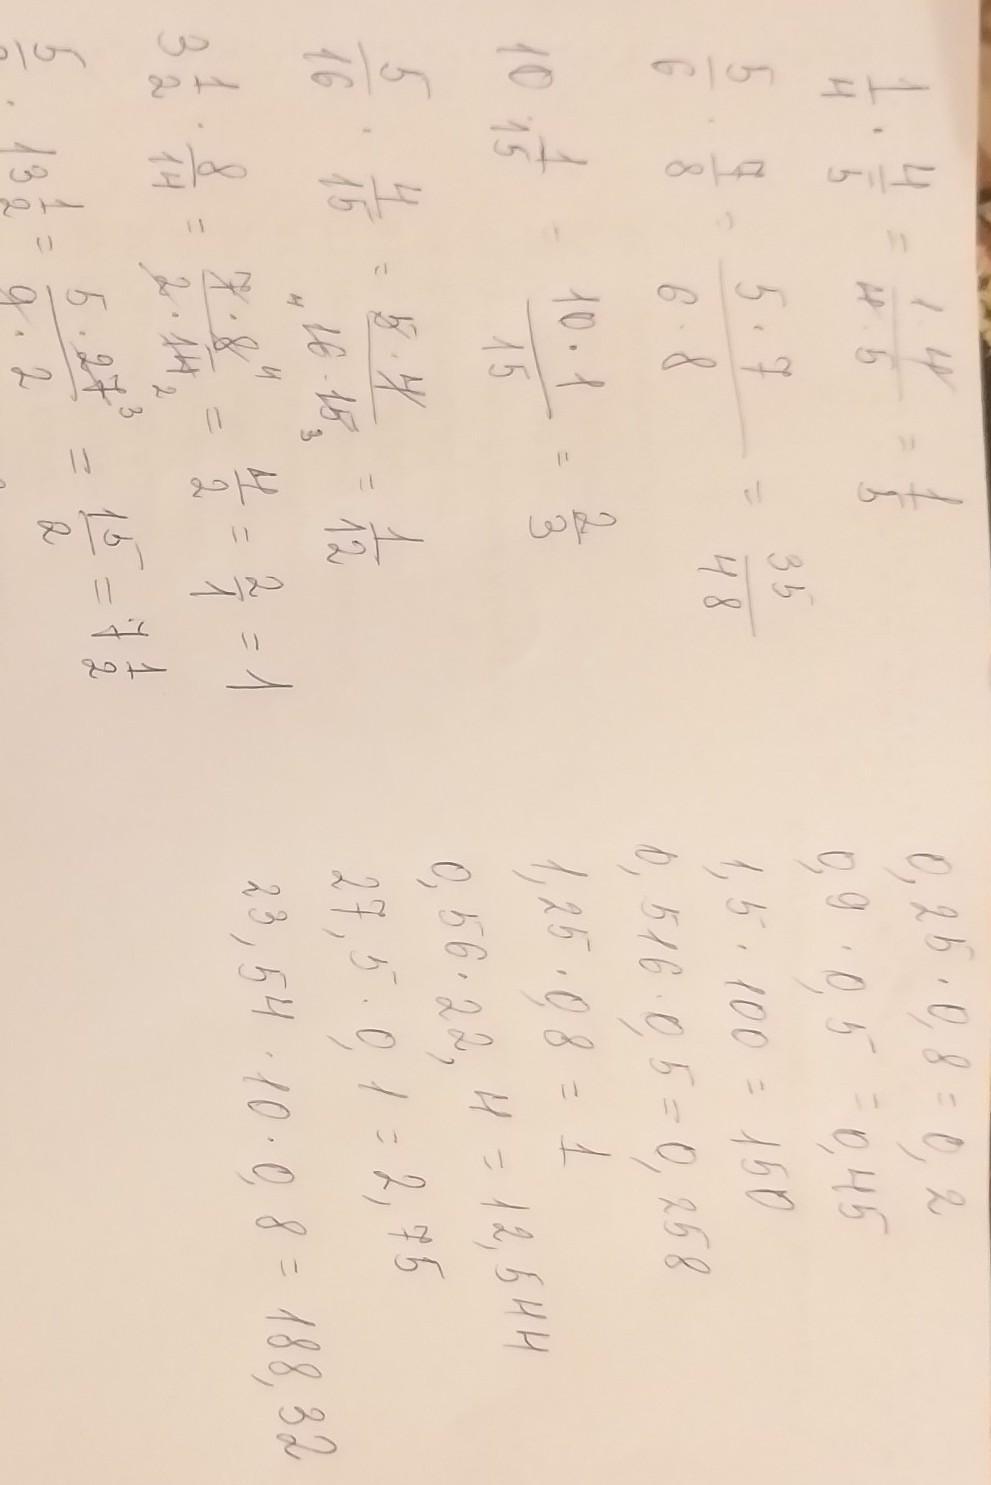 1/4 · 4/5 = 1·4/4·5 = 1/5
5/6 · 7/8 = 5·7/6·8 = 35/48
10 · 1/15 = 10·1/15 = 2/3
5/16 · 4/15 = 5·4/4 16·15 3 = 1/12
3 1/2 · 8/14 = 7·8 4/2·14 2 = 4/2 = 2/1 = 1
5/ · 13 1/2 = 5·27 3/9·2 = 15/2 = 7 1/2
0,25 · 0,8 = 0,2
0,9 · 0,5 = 0,45
1,5 · 100 = 150
0,516 · 0,5 = 0,258
1,25 · 0,8 = 1
0,56 · 22,4 = 12,544
27,5 · 0,1 = 2,75
23,54 · 10 · 0,8 = 188,32